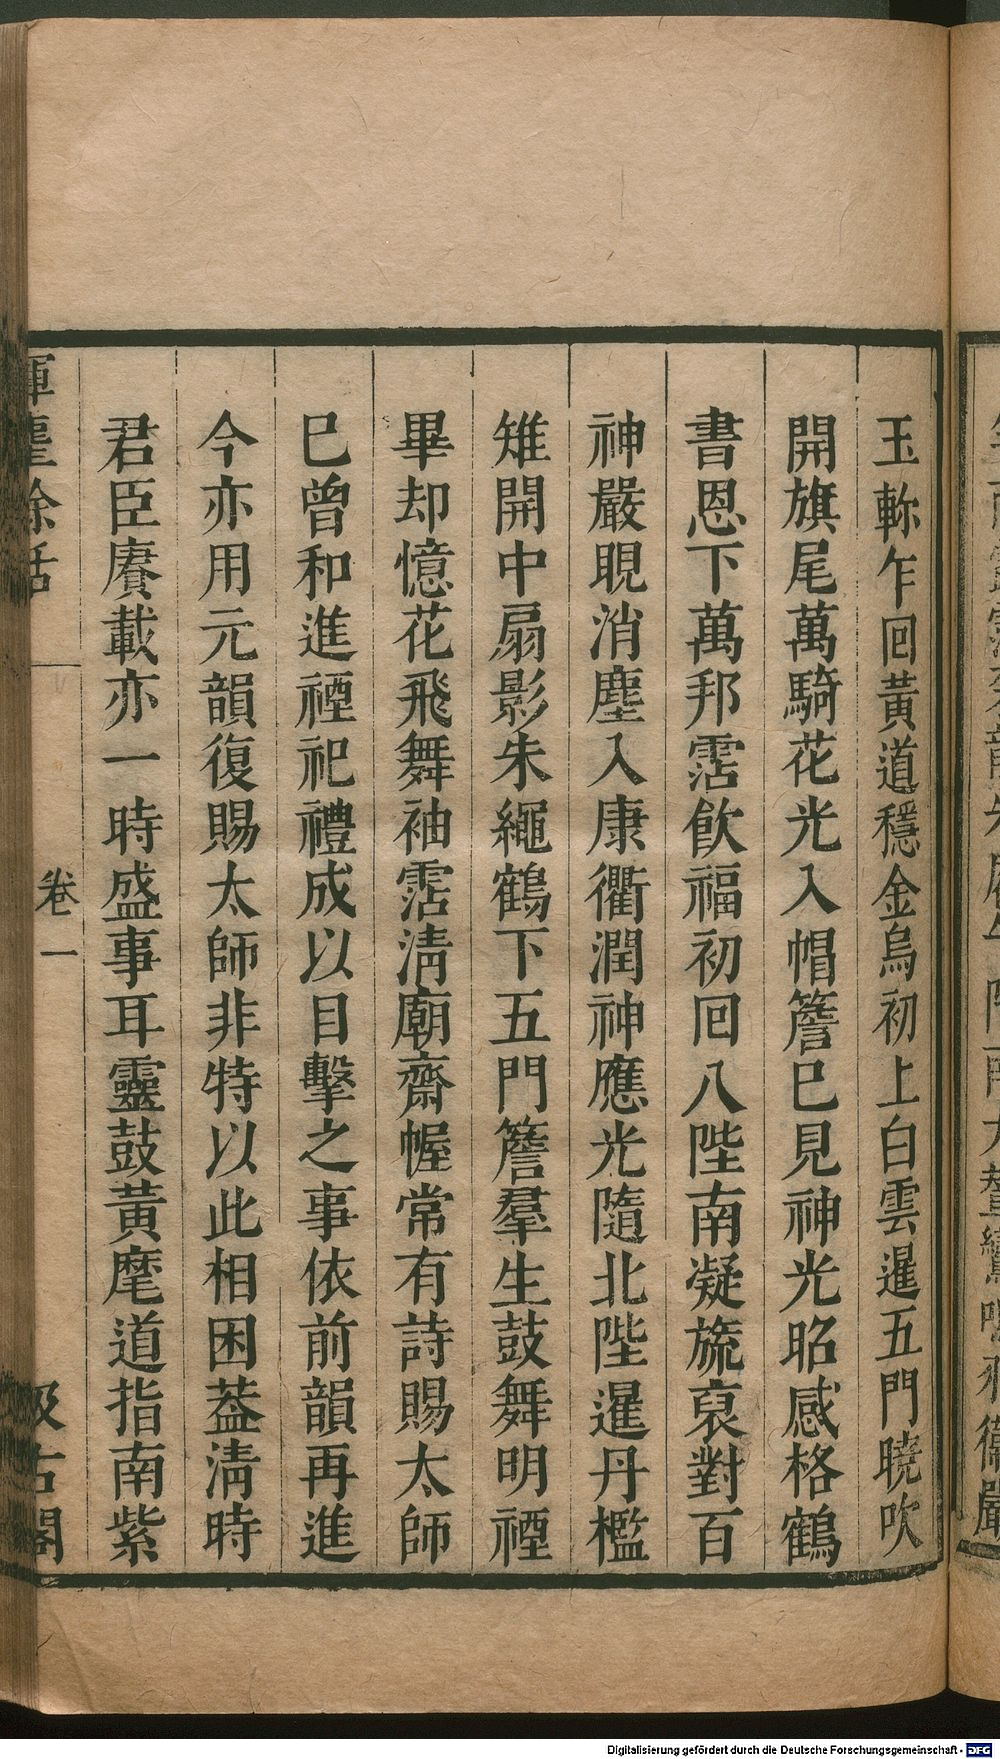 玉軫乍回黃道穩金烏初上白雲暹五門曉吹
開旗尾萬騎花光入帽簷巳見神光昭感格鶴
書恩下萬邦霑飲福初回八陛南凝旒裒對百
神嚴晛消塵入康衢潤神應光隨北陛暹丹檻
雉開中扇影朱繩鶴下五門簷羣生鼓舞明禋
畢却憶花飛舞袖霑淸廟齋幄常有詩賜太師
巳曾和進禋祀禮成以目擊之事依前韻再進
今亦用元韻復賜太師非特以此相困葢淸時
君臣賡載亦一時盛事耳靈鼓黃麾道指南紫
揮麈餘話
卷一
汲古閣
Digitalisierung gefördert durch die Deutsche Forschungsgemeinschaft - DFG